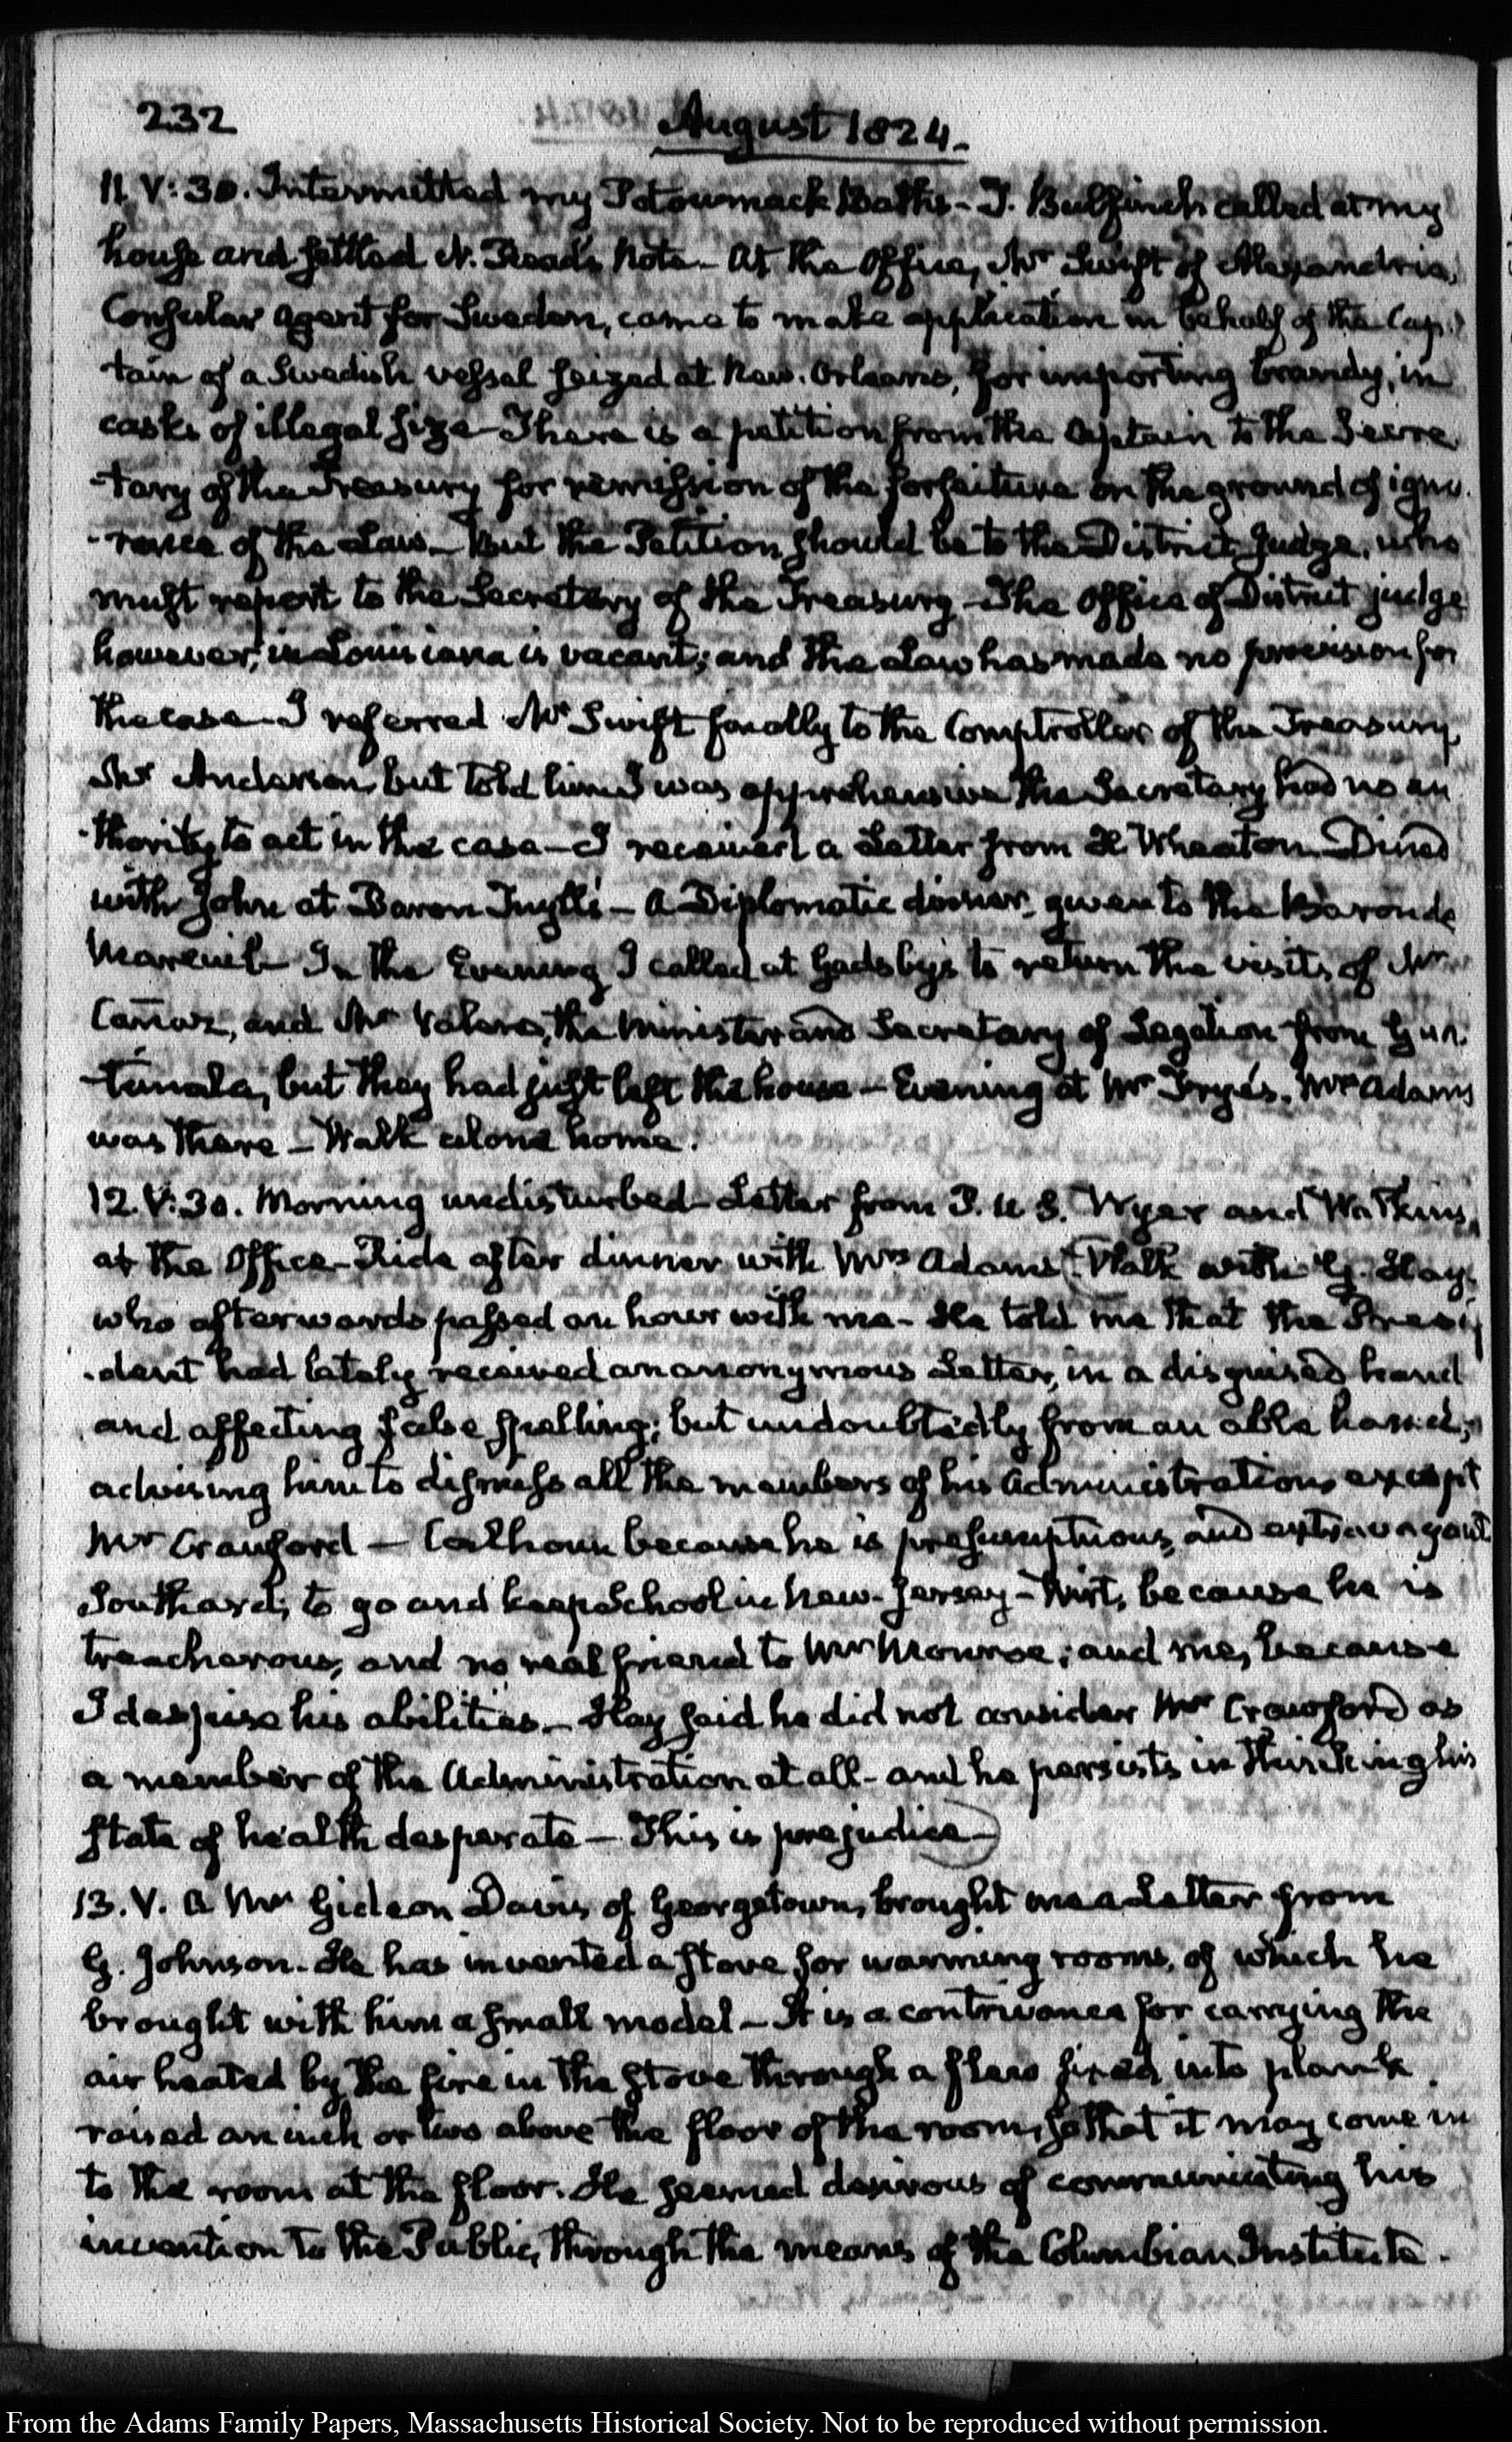 232
August 1824.
11. V:30. Intermitted my Potowmack Baths - T. Bulfinch called at my
house and settled N. Read's Note - At the Office, Mr Swift of Alexandria,
Consular Agent for Sweden, came to make application in behalf of the Cap-
tain of a Swedish vessel seized at New-Orleans, for importing brandy, in
casks of illegal size - There is a petition from the Captain to the Secre
-tary of the Treasury for remission of the forfeiture on the ground of igno-
-rance of the Law - But the Petition should be to the District Judge, who
must report to the Secretary of the Treasury - The Office of District judge
however, in Louisiana is vacant; and the Law has made no provision for
the case - I referred Mr Swift finally to the Comptroller of the Treasury,
Mr Anderson, but told him I was apprehensive the Secretary had no au
-thority to act in the case - I received a Letter from H Wheaton. Dined
with John at Baron Tuyll's - A Diplomatic dinner, given to the Baron de
Mareuil - In the Evening I called at Gadsby's to return the visits of Mr
Cañaz, and Mr Valero, the Minister and Secretary of Legation from Gua-
-temala, but they had just left the house - Evening at Mr Frye's. Mrs Adams
was there - Walk alone home.
12. V:30. Morning undisturbed - Letter from P. U S. Wyer and Watkins,
at the Office - Ride after dinner with Mrs Adams - Walk with G. Hay,
who afterwards passed an hour with me - He told me that the Presi
-dent had lately received an anonymous Letter, in a disguised hand
and affecting false spelling; but undoubtedly from an able hand;
advising him to dismiss all the members of his Administration except
Mr Crawford - Calhoun because he is presumptuous, and extravagant
Southard, to go and keep School in New-Jersey - Wirt, because he is
treacherous, and no real friend to Mr Monroe; and me, because
I despise his abilities - Hay said he did not consider Mr Crawford as
a member of the Administration at all - and he persists in thinking his
state of health desperate - This is prejudice -
13. V. A Mr Gideon Davis of Georgetown, brought me a Letter from
G. Johnson. He has invented a stove for warming rooms, of which he
brought with him a small model - It is a contrivance for carrying the
air heated by the fire in the stove through a flew fixed into plank
raised an inch or two above the floor of the room, so that it may come in
to the room at the floor. He seemed desirous of communicating his
invention to the Public, through the means of the Columbian Institute.
From the Adams Family Papers, Massachusetts Historical Society. Not to be reproduced without permission.